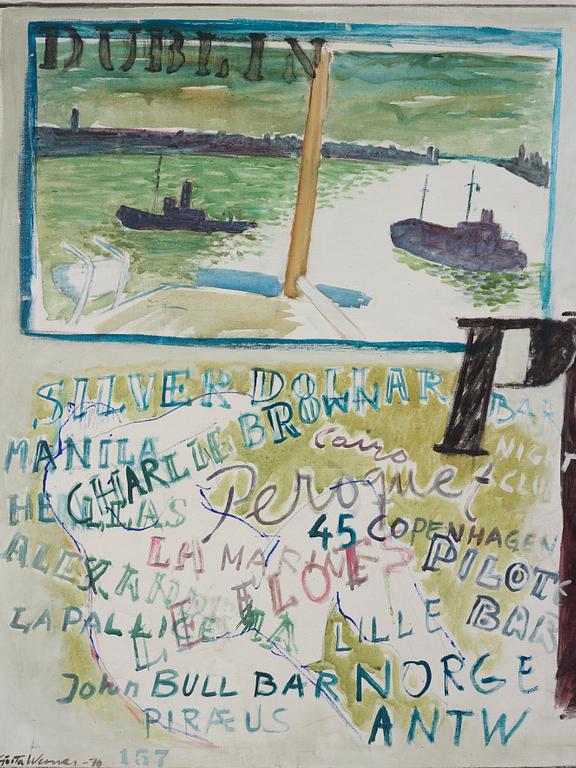 DUBLIN
P
SILVER DOLLAR
BAR
CHARLIE BROWN
MANILA
Cairo
NIGHT
CLU
Peroquet
HELLAS
45 COPENHAGEN
LA MARINES
PILOT
ALEXAND
LE FLOTS
BAR
LA PALLICE
LILLE
John BULL BAR
NORGE
PIRÆUS
ANTW
Gösta Werner -70
157